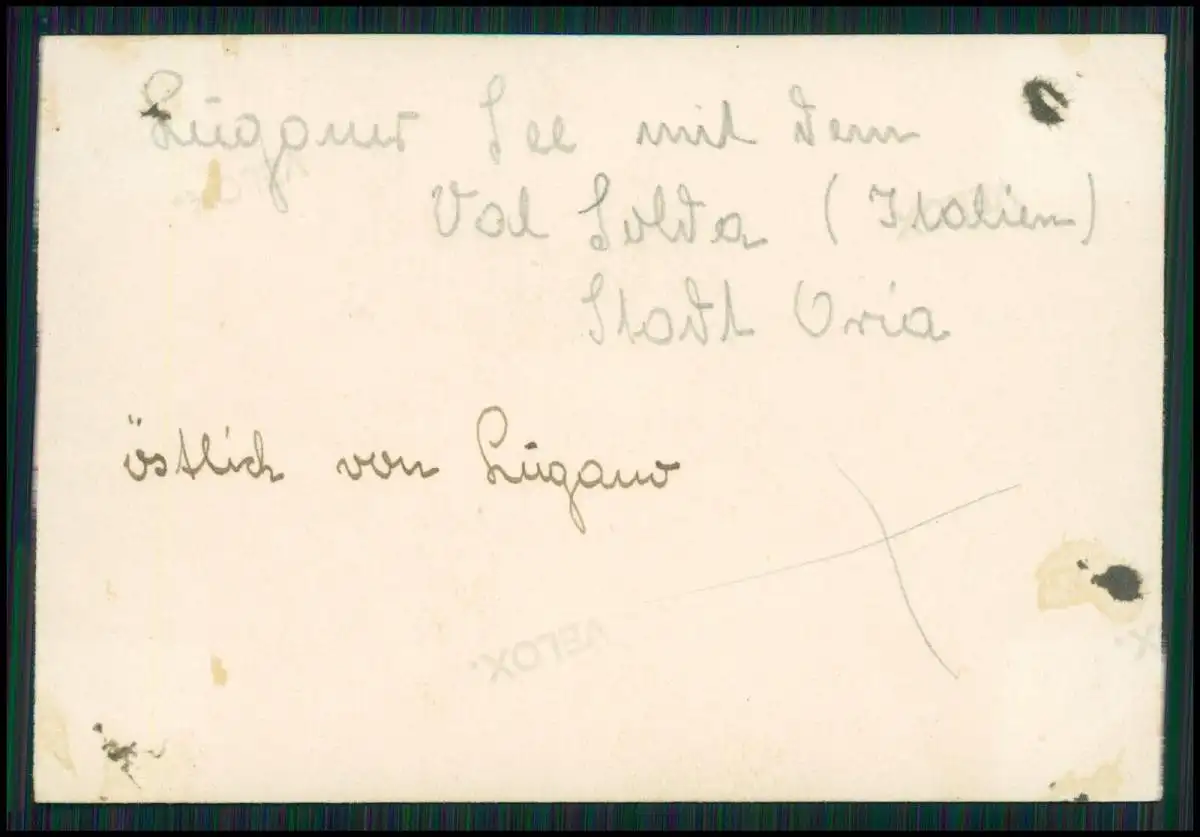 Lugano See mit dem
Val Solda (Italien)
Stadt Oria
östlich von Lugano
VELOX